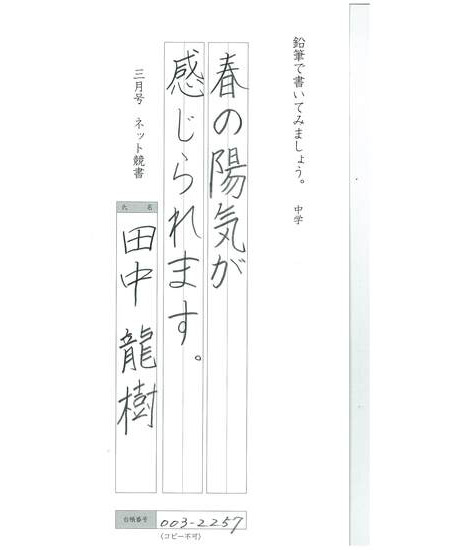 鉛筆で書いてみましょう。 中学
春の陽気が
感じられます。
三月号 ネット競書
氏名
田中 龍樹
台帳番号 003-2257
(コピー不可)